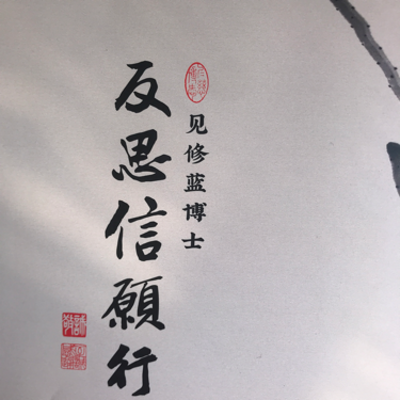 见修蓝博士
反思信願行